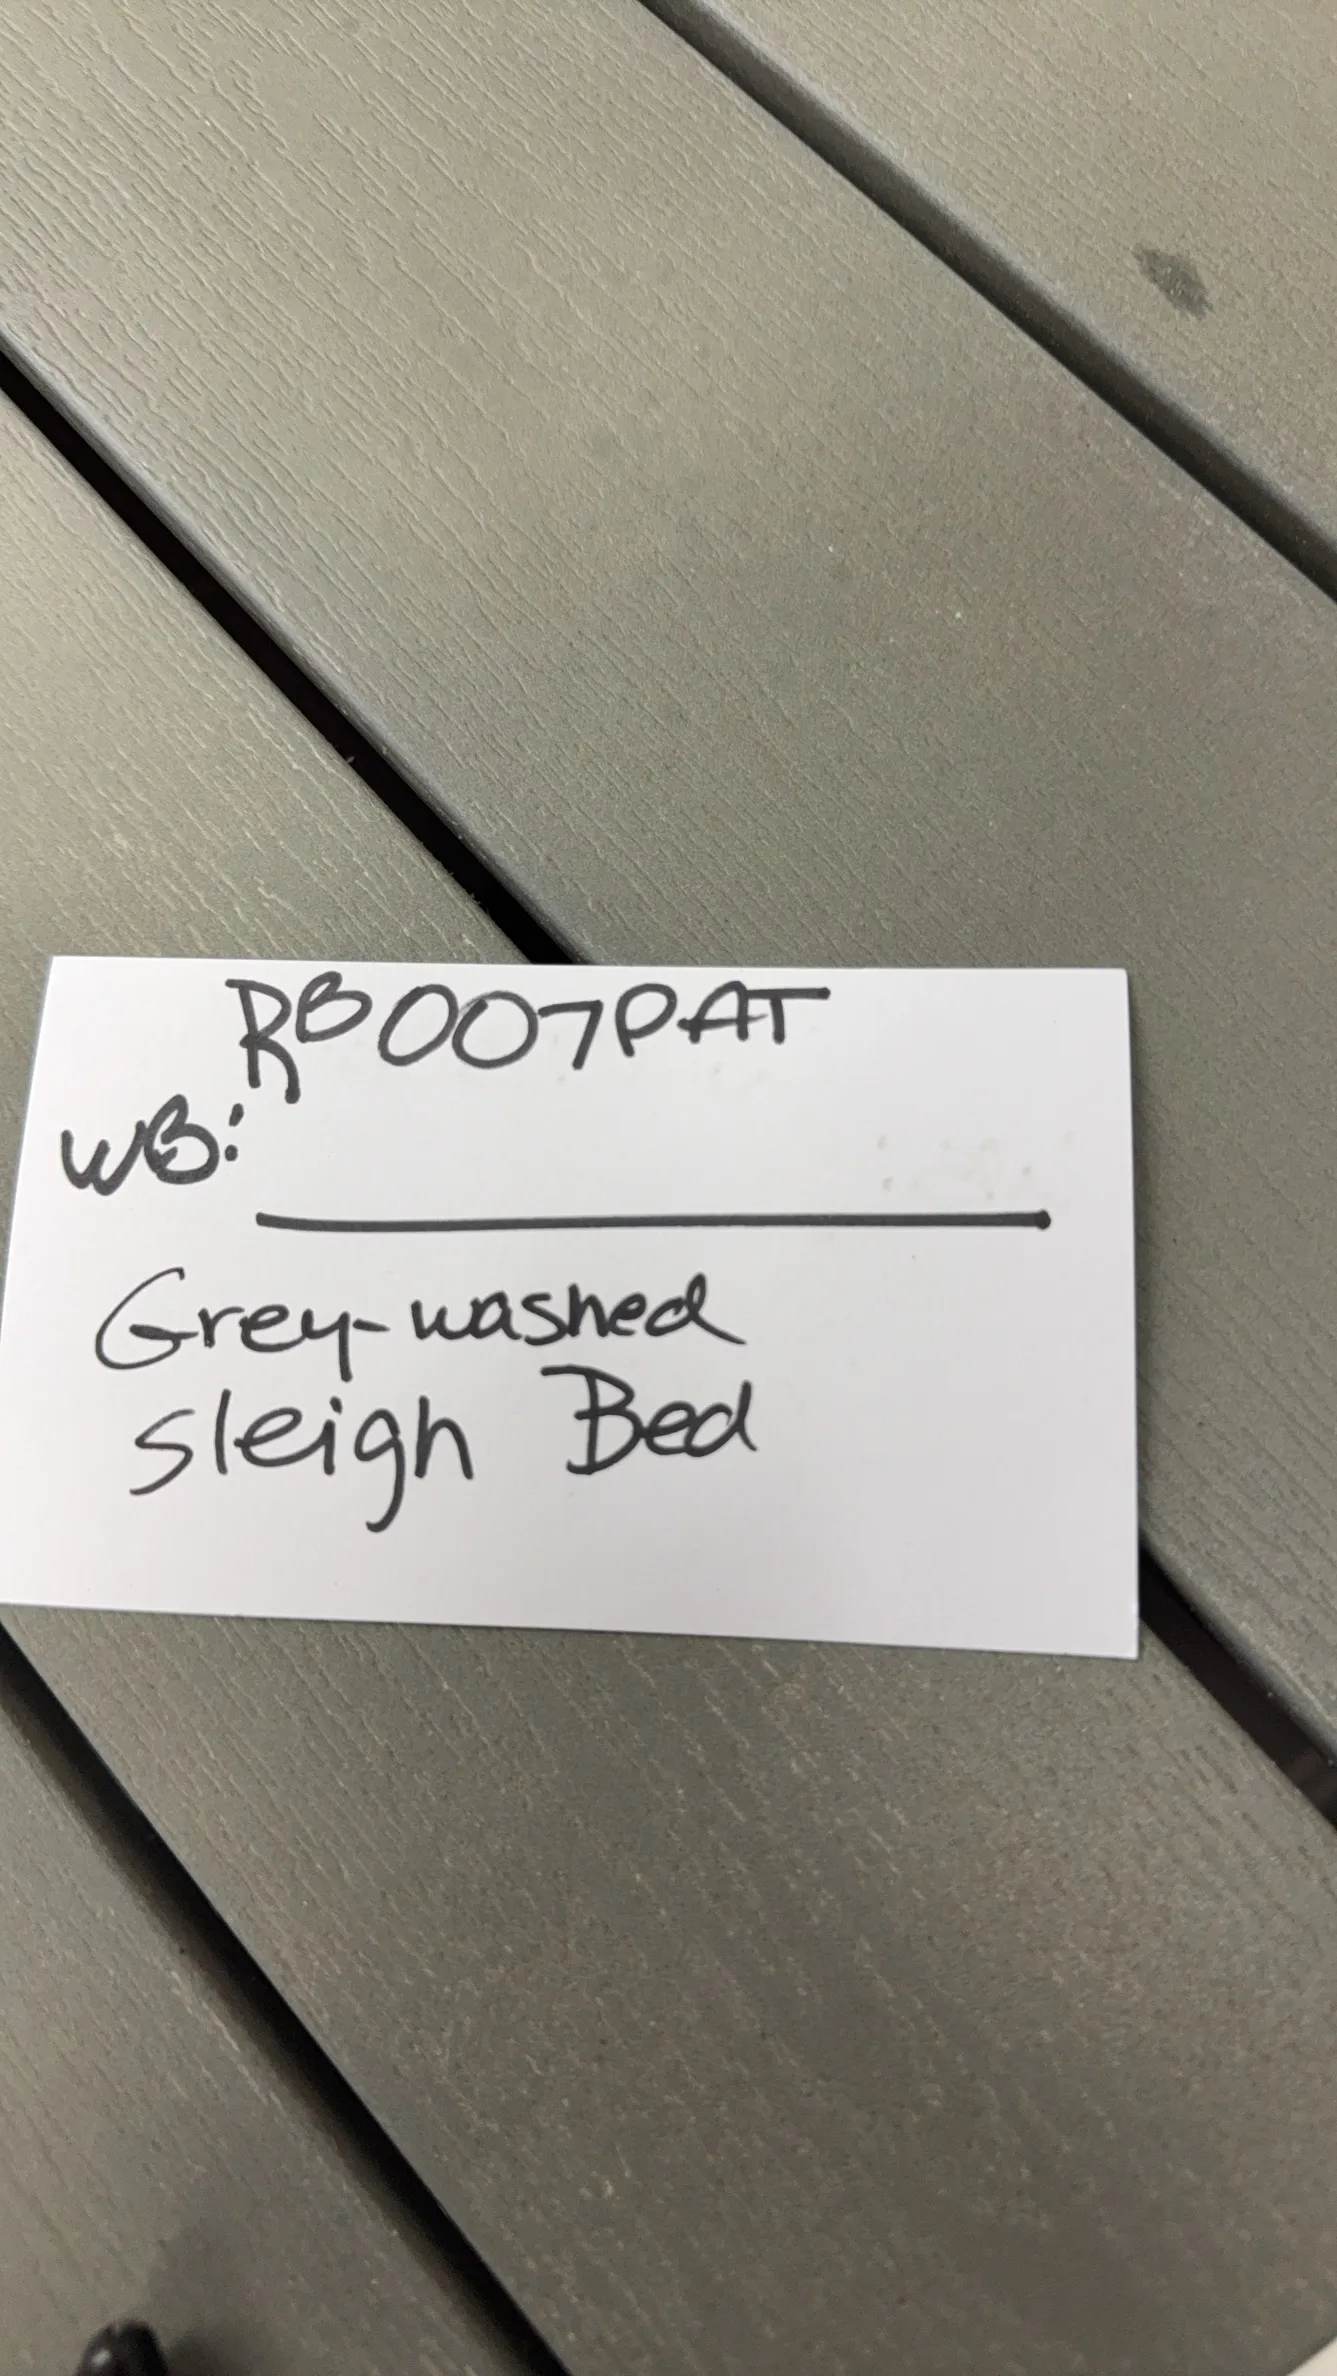 RB007PAT
WB:
Grey-washed
sleigh Bed